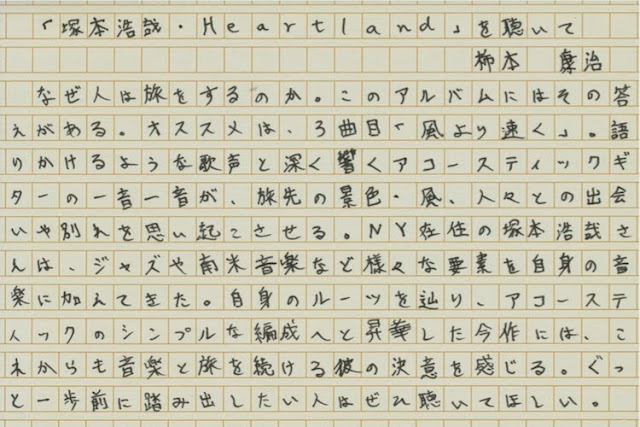 「塚本浩哉・Heartland」を聴いて
柳本 棄治
なぜ人は旅をするのか。このアルバムにはその答
えがある。オススメは、3曲目「風より速く」。語
りかけるような歌声と深く響くアコースティックギ
ターの一音一音が、旅先の景色・風、人々との出会
いや別れを思い起こさせる。NY在住の塚本浩哉さ
んは、ジャズや南米音楽など様々な要素を自身の音
楽に加えてきた。自身のルーツを辿り、アコーステ
ィックのシンプルな編成へと昇華した今作には、こ
れからも音楽と旅を続ける彼の決意を感じる。ぐっ
と一歩前に踏み出したい人はぜひ聴いてほしい。